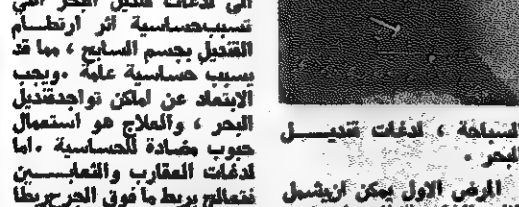 السباحة ، لدغات قنديـــــل
البحر .
المرض الاول يمكن ان يشمل
الى لدغات قنديل البحر التي
تسبب حساسية اثر ارتطـــام
القنديل بجسم السابح ، مما قد
يسبب حساسية عامة . ويجب
الابتعاد عن اماكن تواجد قنديل
البحر ، والعلاج هو استعمال
حبوب مضادة للحساسية . اما
لدغات العقارب والثعابــــين
فتعالج بربط ما فوق الجرح ربطا